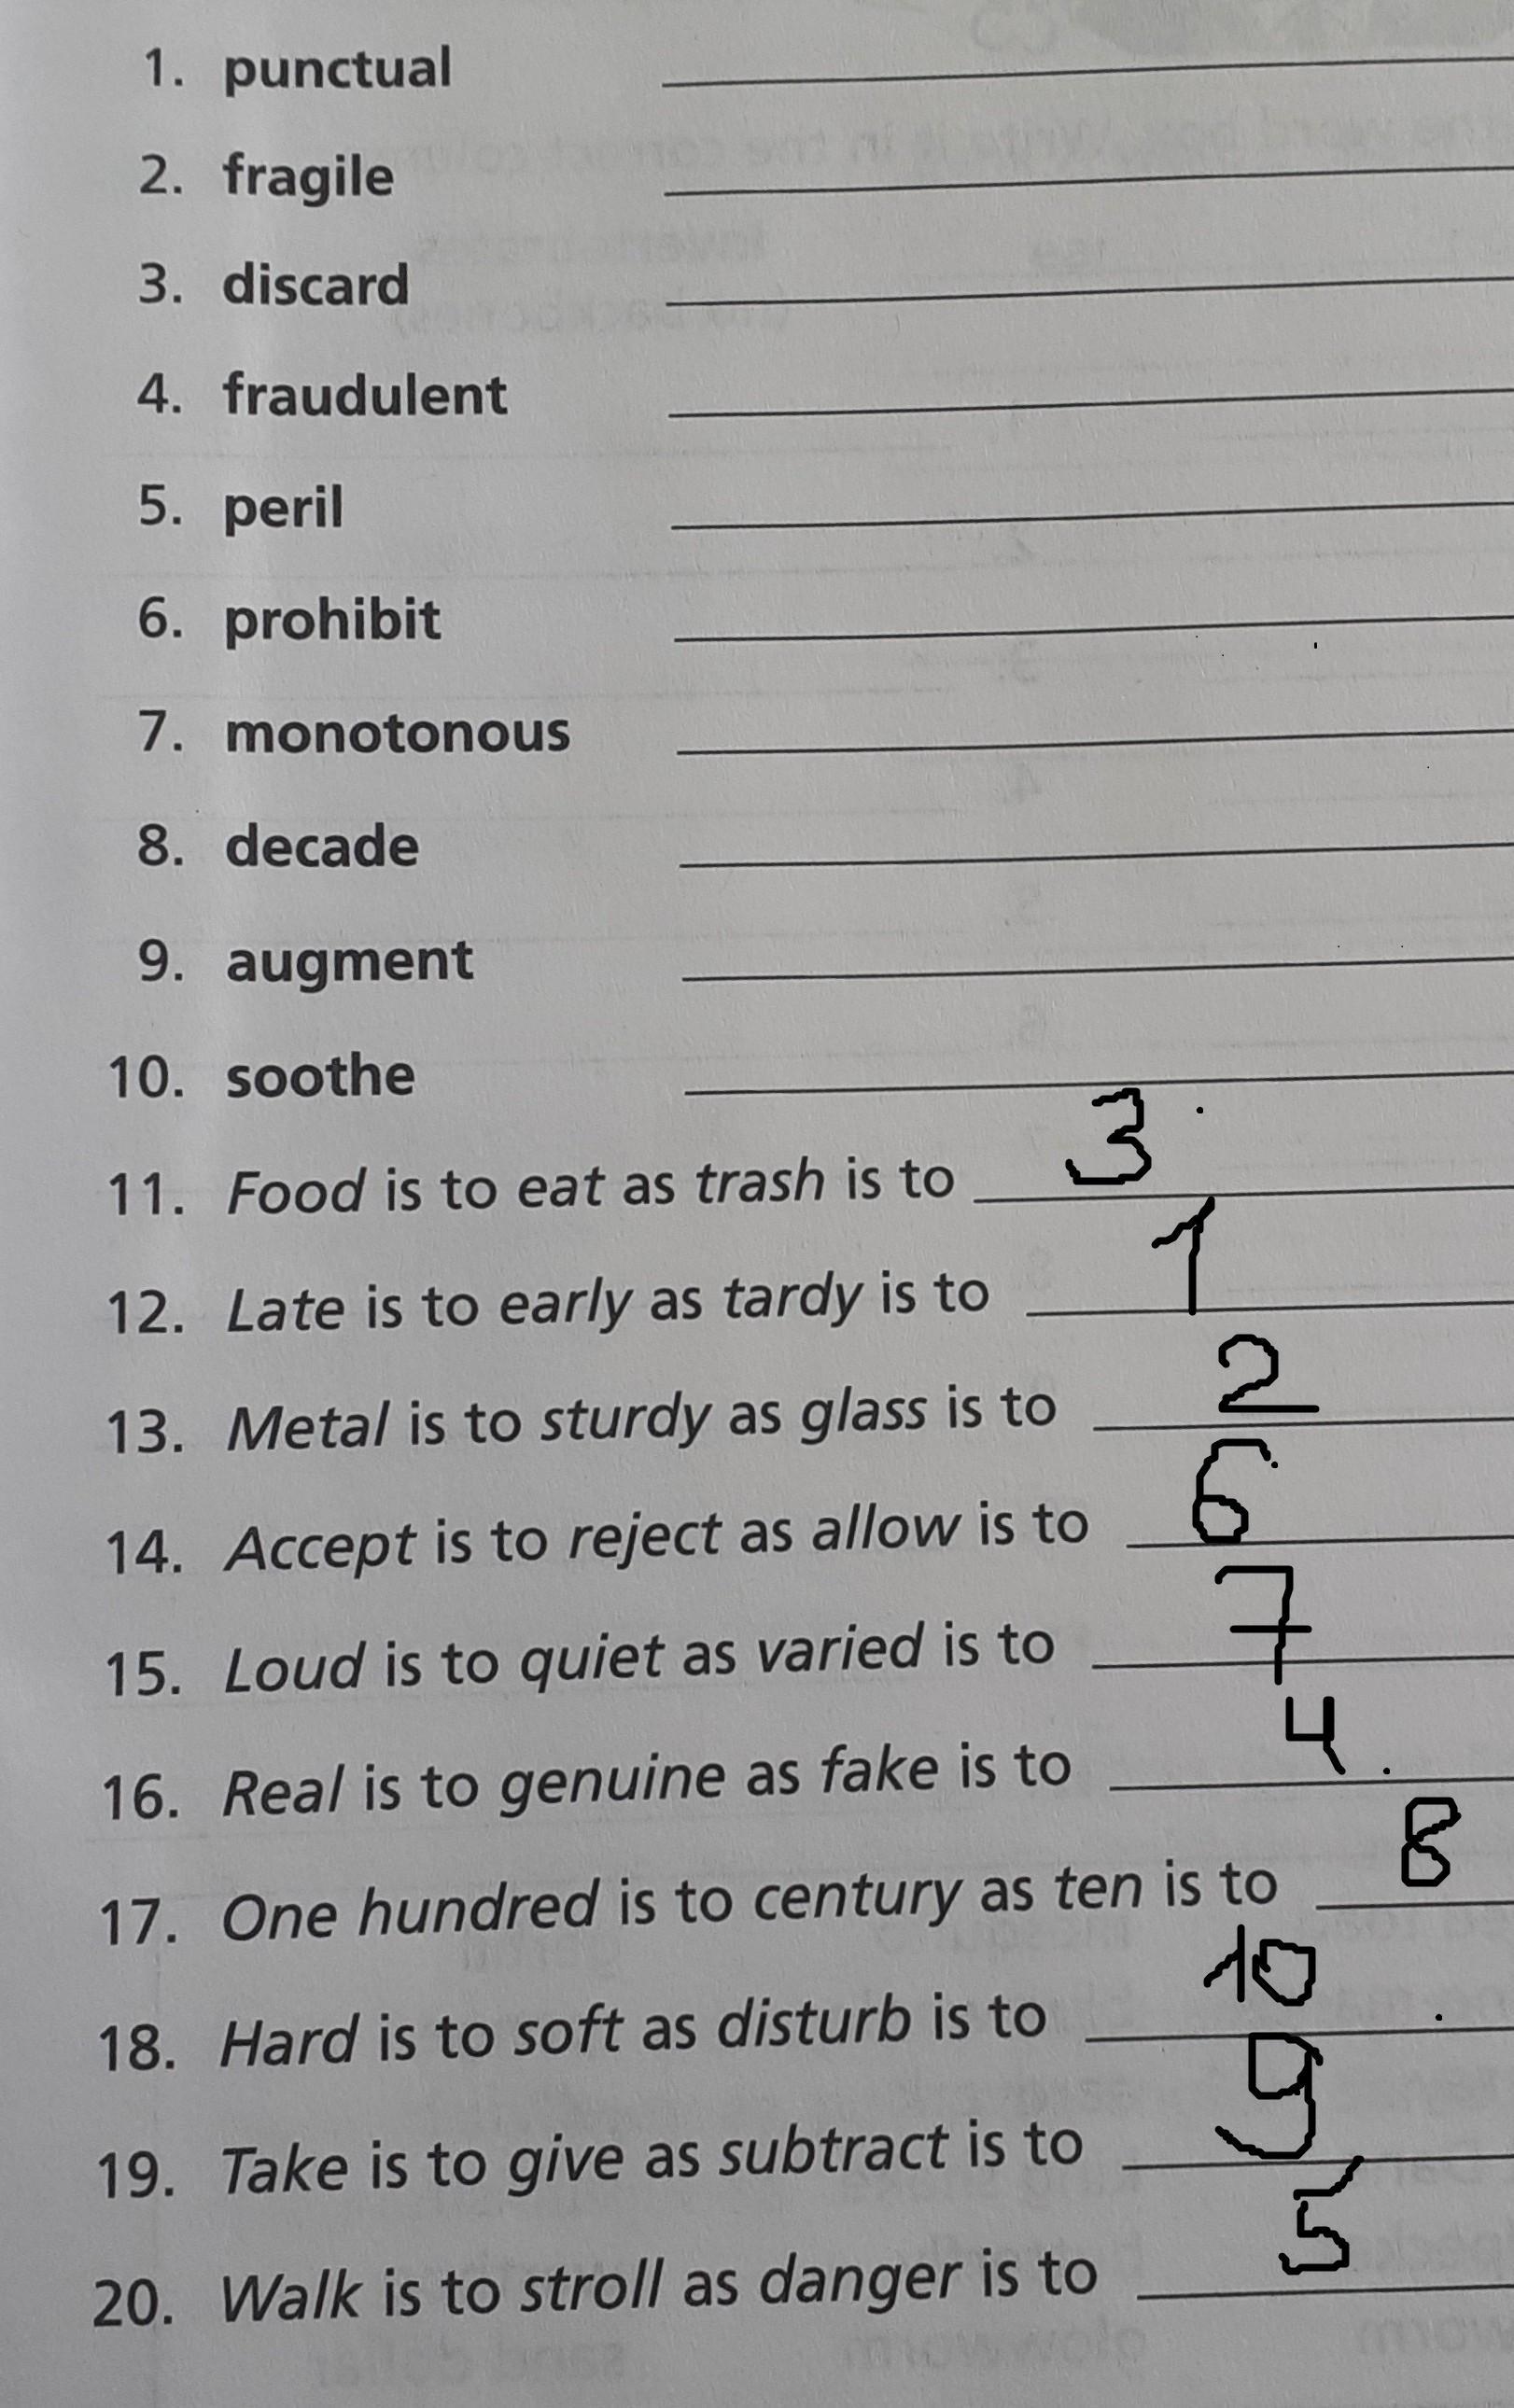 1. punctual
2. fragile
3. discard
4. fraudulent
5. peril
6. prohibit
7. monotonous
8. decade
9. augment
10. soothe
11. Food is to eat as trash is to 3
12. Late is to early as tardy is to 1
13. Metal is to sturdy as glass is to 2
14. Accept is to reject as allow is to 6
15. Loud is to quiet as varied is to 7
16. Real is to genuine as fake is to 4
17. One hundred is to century as ten is to 8
18. Hard is to soft as disturb is to 10
19. Take is to give as subtract is to 9
20. Walk is to stroll as danger is to 5